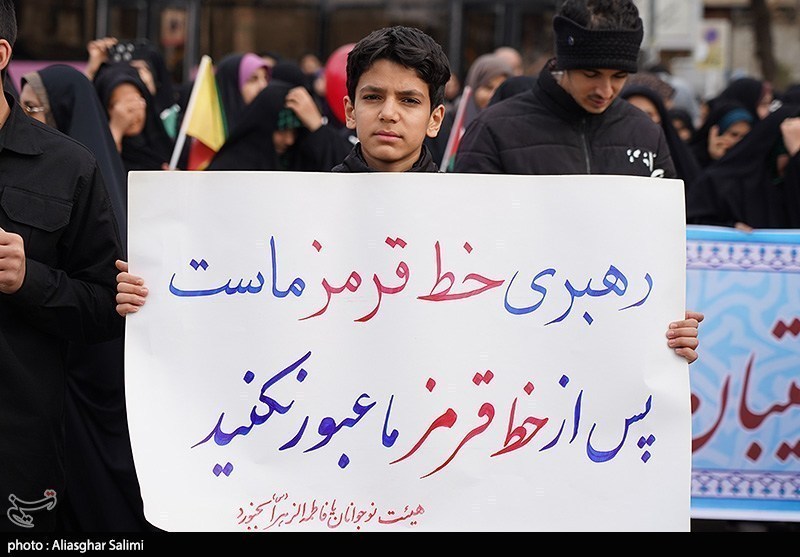 رهبری خط قرمز ماست
پس از خط قرمز ما عبور نکنید
هیئت نوجوانان یا فاطمه الزهرا (س) بجنورد
تیبان
تسنیم
photo : Aliasghar Salimi